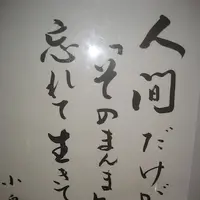 人間だけが
「そのまんま
忘れて生きて
小